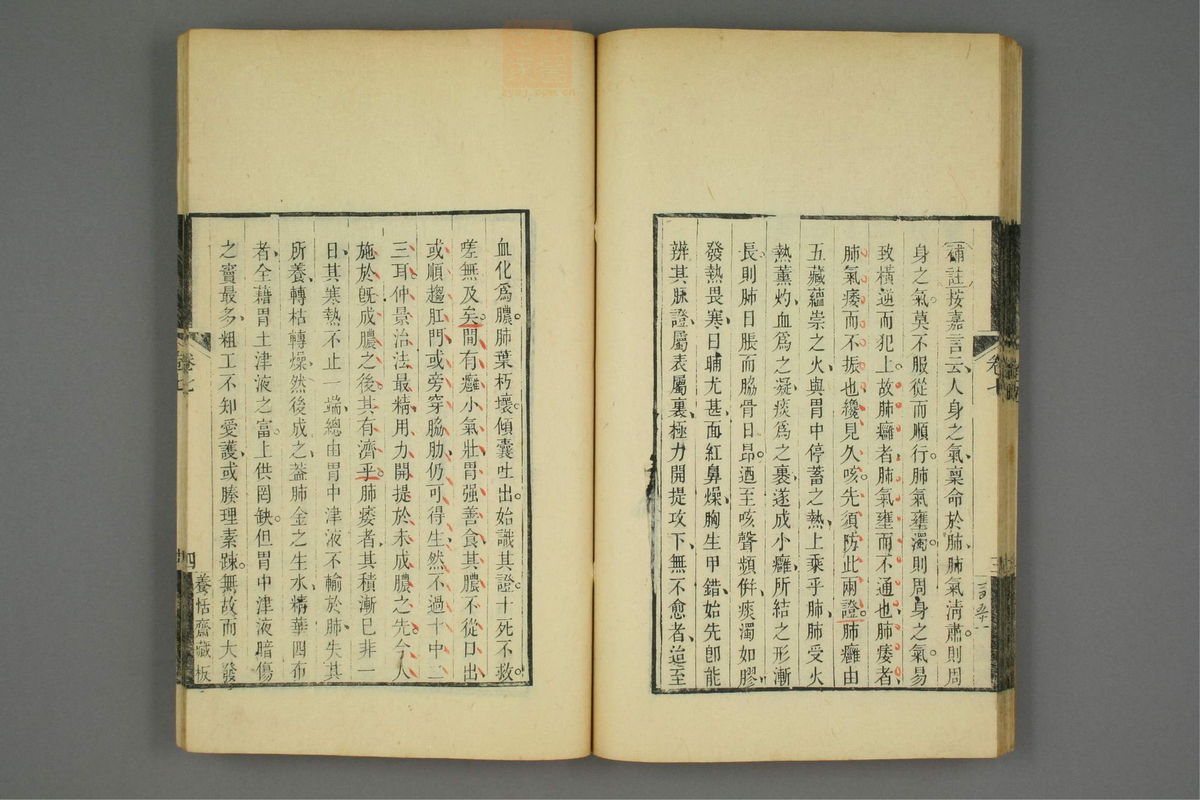 補註按嘉言云人身之氣稟命於肺肺氣清肅則周
身之氣莫不服從而順行肺氣壅濁則周身之氣易
致橫逆而犯上故肺癰者肺氣壅而不通也肺痿者
肺氣痿而不振也纔見久咳先須防此兩證肺癰由
五藏蘊崇之火與胃中停蓄之熱上乘乎肺肺受火
熱薰灼血爲之凝痰爲之裹遂成小癰所結之形漸
長則肺日脹而脇骨日昂迺至咳聲頻倂痰濁如膠
發熱畏寒日晡尤甚面紅鼻燥胸生甲錯始先卽能
辨其脉證屬表屬裏極力開提攻下無不愈者迨至
卷七
三
血化爲膿肺葉朽壞傾囊吐出始識其證十死不救
嗟無及矣間有癰小氣壯胃强善食其膿不從口出
或順趨肛門或旁穿脇肋仍可得生然不過十中二
三耳仲景治法最精用力開提於未成膿之先今人
施於旣成膿之後其有濟乎肺痿者其積漸已非一
日其寒熱不止一端總由胃中津液不輸於肺失其
所養轉枯轉燥然後成之蓋肺金之生水精華四布
者全藉胃土津液之富上供罔缺但胃中津液暗傷
之竇最多粗工不知愛護或腠理素疎無故而大發
卷七
四
養恬齋藏板